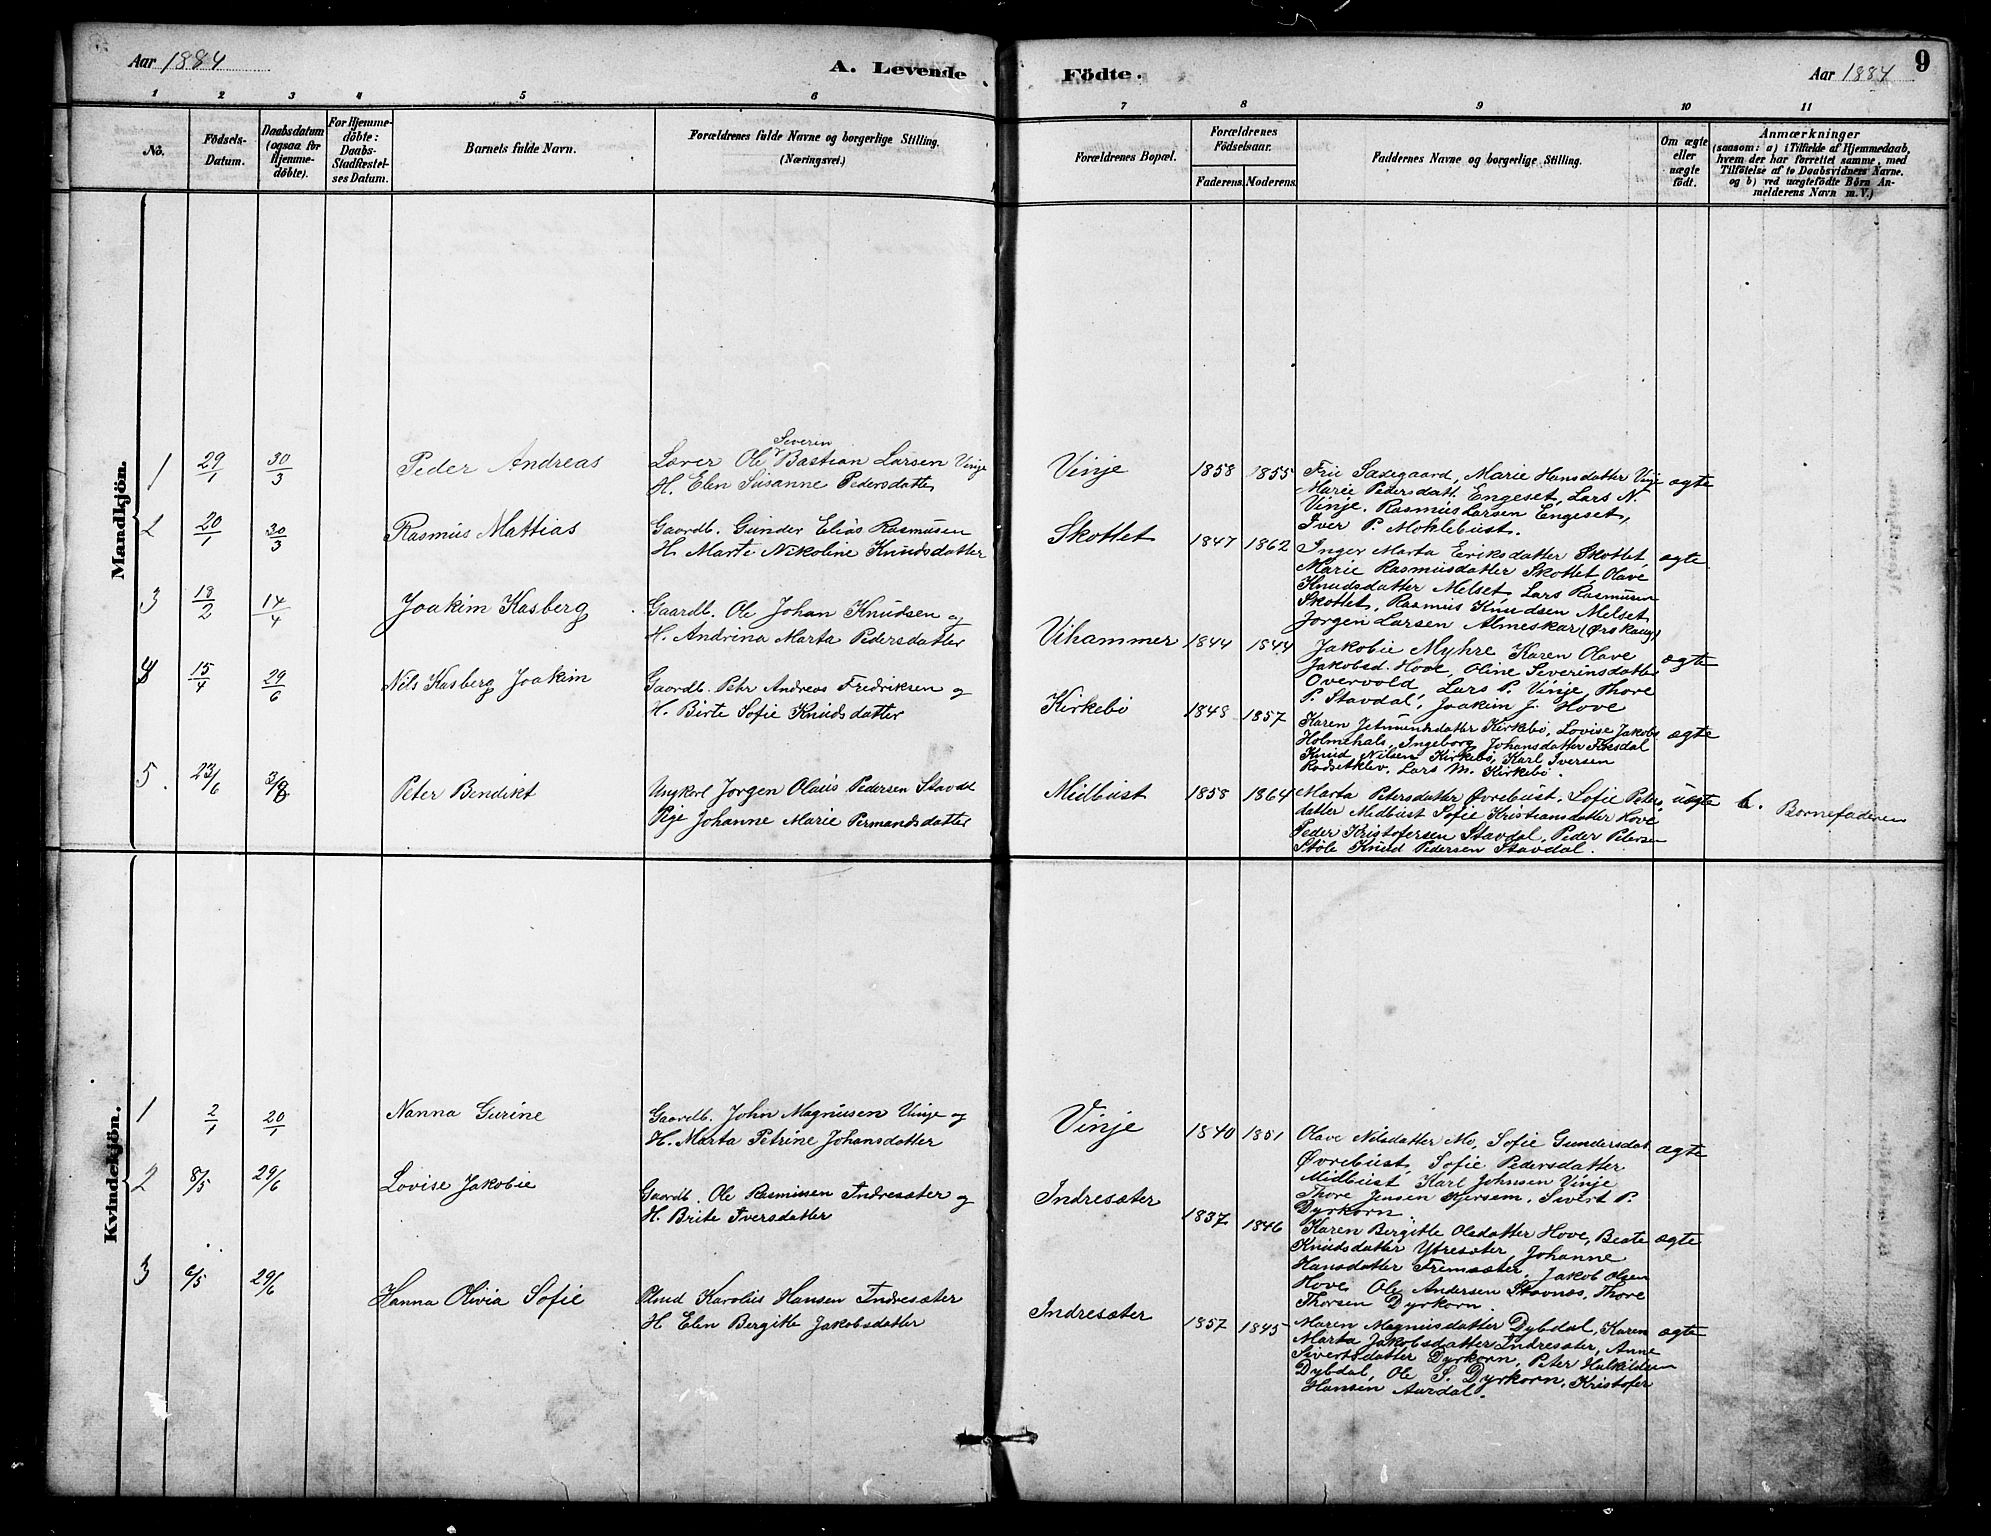 Aar 1884
A. Levende
Födte.
Aar 1884
9
1 2 3 4 5 6 7 8 9 10 11
No.
Födsels-
Datum.
Daabsdatum
(ogsaa for
Hjemme-
döbte).
For Hjemme-
döbte:
Daabs-
Stadfæstel-
ses Datum.
Barnets fulde Navn.
Forældrenes fulde Navne og borgerlige Stilling.
(Næringsvei.)
Forældrenes Bopæl.
Forældrenes
Födselsaar.
Faderens. Moderens.
Faddernes Navne og borgerlige Stilling.
Om ægte
eller
uægte
födt.
Anmærkninger
(saasom: a) i Tilfælde af Hjemmedaab,
hvem der har forrettet samme, med
Tilföielse af to Daabsvidners Navne.
og b) ved uægtefödte Börn An-
melderens Navn m.V.)
Mandkjön.
1 29/1 30/3 Peder Andreas
Severin
Lærer Ole Bastian Larsen Vinje
H. Elen Susanne Pedersdatter
Vinje 1858 1855
Fru Saxegaard, Marie Hansdatter Vinje
Marie Pedersdatt. Engeset, Lars N.
Vinje. Rasmus Larsen Engeset,
Iver P. Moklebust.
ægte
2 20/1 30/3 Rasmus Mattias
Gaardb. Gunder Elias Rasmusen
H. Marte Nikoline Knudsdatter
Skottet 1847 1862
Inger Marta Eriksdatter Skottet,
Marie Rasmusdatter Skottet, Olave
Knudsdatter Melset, Lars Rasmusen
Skottet, Rasmus Knudsen Melset
Jorgen Larsen Almeskar (Ørskoug)
ægte
3 18/2 14/4 Joakim Kasberg
Gaardb. Ole Johan Knudsen og
H. Andrina Marta Pedersdatter
Vihammer 1844 1844
Jakobie Myhre Karen Olave
Jakobsd. Hove, Oline Severinsdatter
Overvold, Lars P. Vinje, Thore
P. Stavdal, Joakim J. Hove
ægte
4 15/4 29/6 Nils Kasberg Joakim
Gaardb. Petr Andreas Fredriksen og
H. Birte Sofie Knudsdatter
Kirkebö 1848 1857
Karen Jetmundsdatter Kirkebö, Lovise Jakobs
Holmehals, Ingeborg Johansdatter
Knud Nilsen Kirkebö, Karl Iversen
Rodsetklev, Lars M. Kirkebö.
ægte
5. 23/6 3/8 Peter Bendikt
Ungkarl Jorgen Olaus Pedersen Stavdal
Pige Johanne Marie Permandsdatter
Midbust 1858 1864
Marta Petersdatter Øvrebust, Sofie Peters
datter Midbust Sofie Kristiansdatter Hove
Peder Kristofersen Stavdal, Peder Petersen
Støle Knud Pedersen Stavdal.
uægte
b. Barnefaderen
Kvindekjön.
1 2/1 20/1 Nanna Gurine
Gaardb. John Magnusen Vinje og
H. Marta Petrine Johansdatter
Vinje 1840 1851
Olave Nilsdatter Mo, Sofie Gundersdat
Øvrebust, Sofie Pedersdatter
Midbust, Karl Johnsen Vinje
Thore Jensen Kjersem, Sivert P.
Dyrkorn.
ægte
2 8/5 29/6 Lovise Jakobie
Gaardb. Ole Rasmusen Indresæter og
H. Brite Iversdatter
Indresæter 1837 1846
Karen Bergitte Olsdatter Hove, Beate
Knudsdatter Ytresæter Johanne
Hansdatter Fremsæter Jakob Olsen
Hove Ole Andersen Stavnes, Thore
Thorsen Dyrkorn.
ægte
3 6/5 29/6 Hanna Olivia Sofie
Knud Karolus Hansen Indresæter
H. Elen Bergitte Jakobsdatter
Indresæter 1857 1845
Maren Magnusdatter Dybdal, Karen
Marta Jakobsdatter Indresæter, Anne
Sivertsdatter Dyrkorn, Peter Halkildsen
Dybdal, Ole S. Dyrkorn, Kristofer
Hansen Aurdal.
ægte